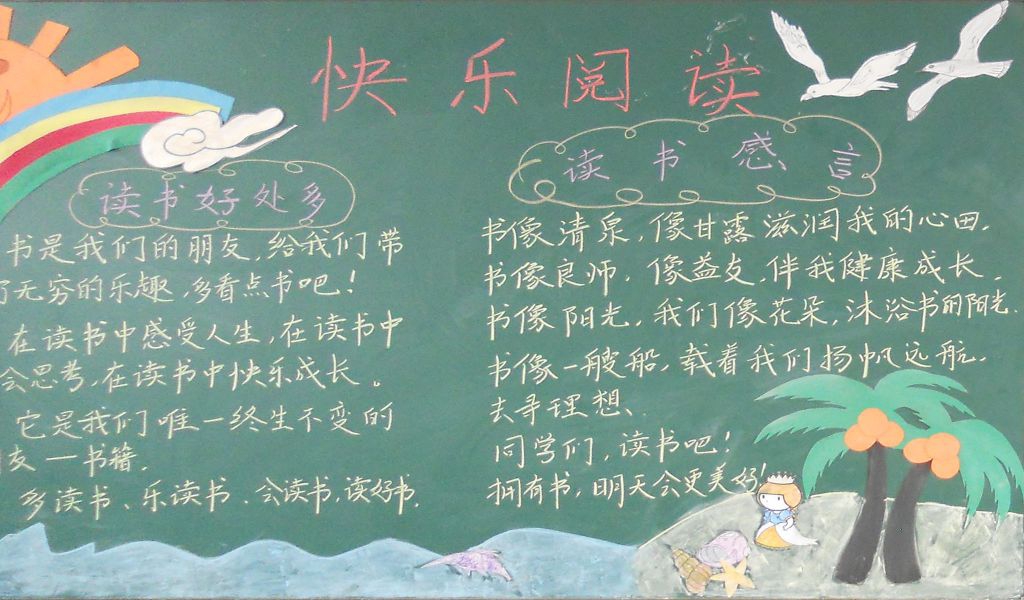 快乐阅读
读书好处多
书是我们的朋友,给我们带
无穷的乐趣,多看点书吧!
在读书中感受人生,在读书中
会思考,在读书中快乐成长。
它是我们唯一终生不变的
友——书籍.
多读书、乐读书、会读书,读好书.
读书感言
书像清泉,像甘露滋润我的心田.
书像良师,像益友,伴我健康成长.
书像阳光,我们像花朵,沐浴书的阳光.
书像一艘船,载着我们扬帆远航.
去寻理想、
同学们,读书吧!
拥有书,明天会更美好!